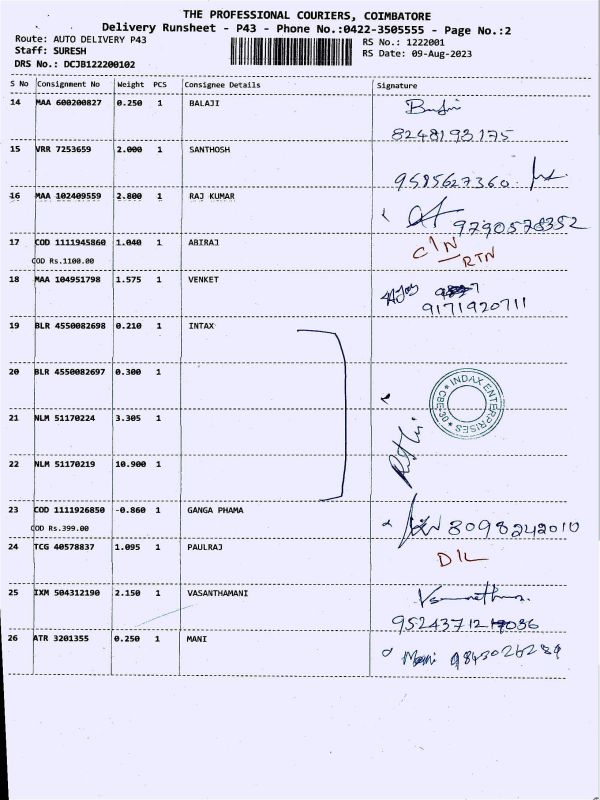 THE PROFESSIONAL COURIERS, COIMBATORE
Delivery Runsheet - P43 - Phone No.:0422-3505555 - Page No.:2
Route: AUTO DELIVERY P43 RS No.: 1222001
Staff: SURESH RS Date: 09-Aug-2023
DRS No.: DCJB122200102
S No Consignment No Weight PCS Consignee Details Signature
14 MAA 600200827 0.250 1 BALAJI
8248193175
15 VRR 7253659 2.000 1 SANTHOSH
9585627360
16 MAA 102409559 2.800 1 RAJ KUMAR
9790578352
17 COD 1111945860 1.040 1 ABIRAJ C/N
COD Rs.1100.00 RTN
18 MAA 104951798 1.575 1 VENKET
9171920711
19 BLR 4550082698 0.210 1 INTAX
20 BLR 4550082697 0.300 1
INDAX ENTERPRISES * CBE-30 *
21 NLM 51170224 3.305 1
22 NLM 51170219 10.900 1
23 COD 1111926850 -0.860 1 GANGA PHAMA 8098242010
COD Rs.399.00
24 TCG 40578837 1.095 1 PAULRAJ D/L
25 IXM 504312190 2.150 1 VASANTHAMANI
26 ATR 3201355 0.250 1 MANI Mani 9843026239